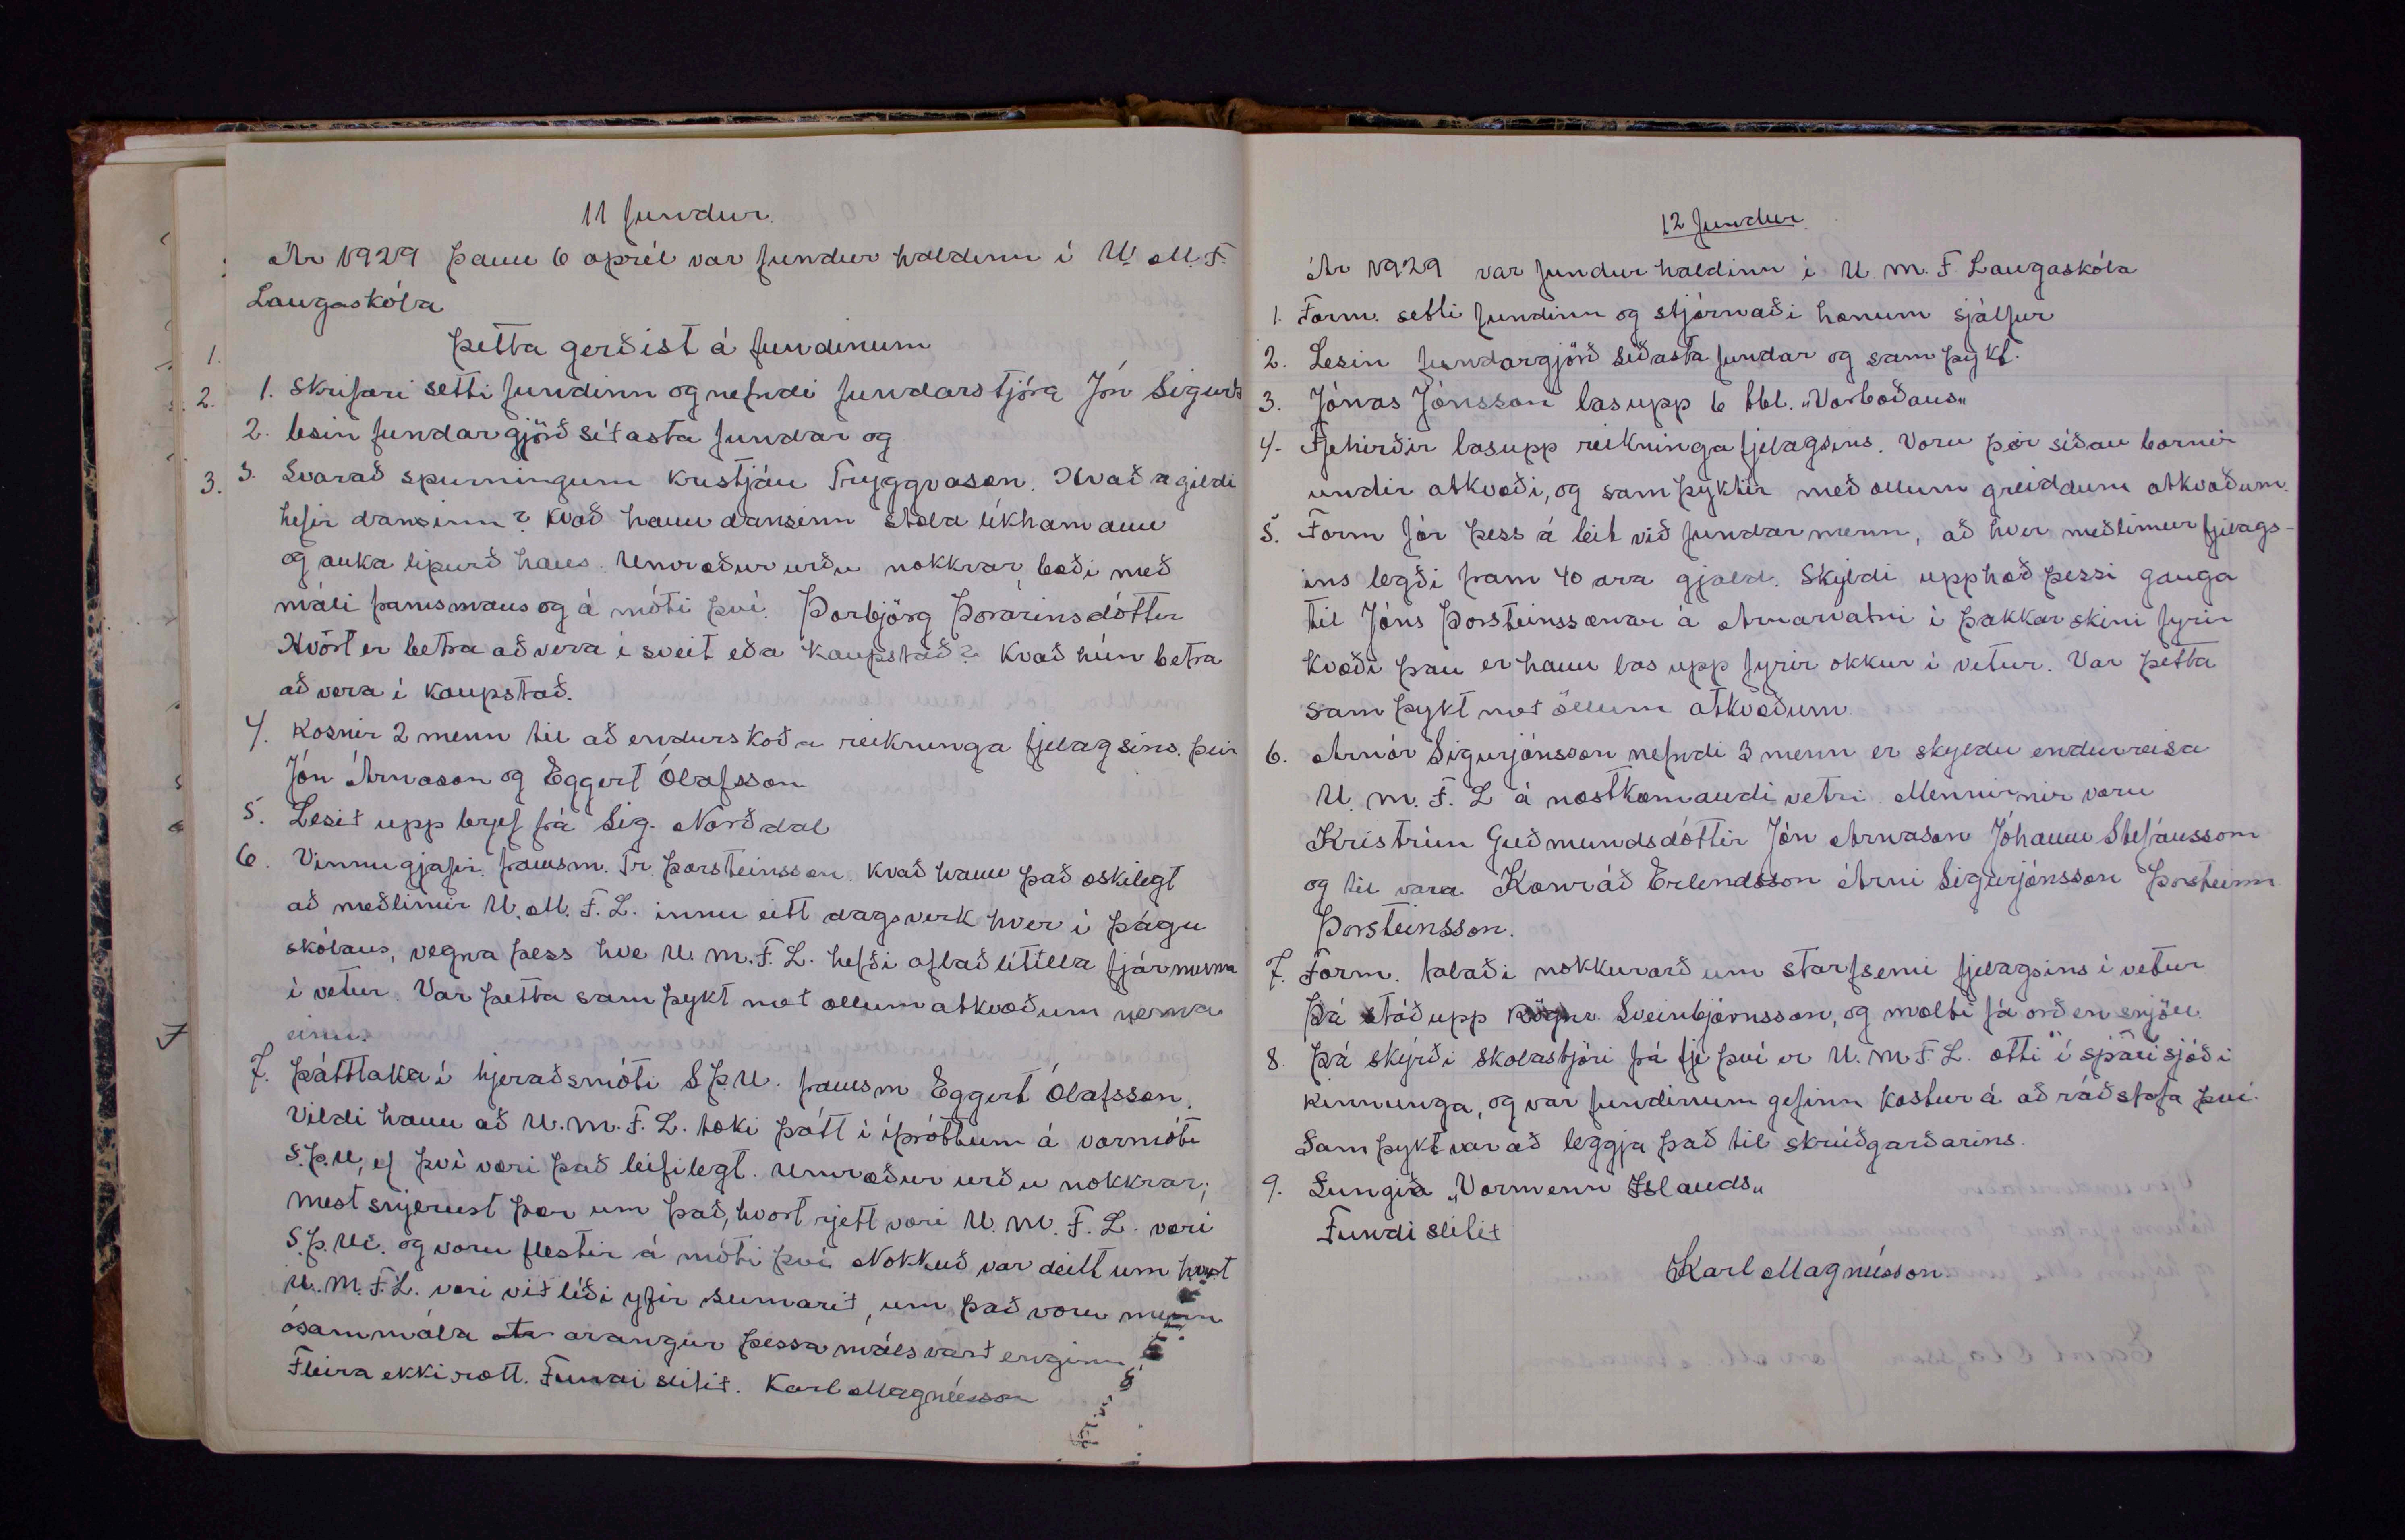 11 fundur.
Ár 1929 þann 6 apríl var fundur haldinn í U. M. F.
Laugaskóla
Þetta gerðist á fundinum
1. Skrifari setti fundinn og nefndi fundarstjóra Jón Sigurðs
2. lesin fundargjörð síðasta fundar og
3. Svarað spurningum Kristján Tryggvason. Hvaða gildi
hefir dansinn? Kvað hann dansinn stæla líkhamann
og auka lipurð hans. Umræður urðu nokkrar, bæði með
máli framsmans og á móti því. Þorbjörg Þorarinsdóttir
Hvört er betra að vera í sveit eða kaupstað? Kvað hún betra
að vera í kaupstað.
4. Kosnir 2 menn til að endurskoða reikninga fjelagsins. þeir
Jón Árnason og Eggert Ólafsson
5. Lesið upp brjef frá Sig. Norðdal
6. Vinnugjafir. framsm. Tr. Þorsteinsson. Kvað hann það æskilegt
að meðlimir U. M. F. L. innu eitt dagsverk hver í þágu
skólans, vegna þess hve U. M. F. L. hefði aflað lítilla fjármuna
í vetur. Var þetta samþykt með ollum atkvæðum nema
einu.
7. Þátttaka í hjeraðsmóti S.Þ.U. framsm Eggert Ólafsson.
Vildi hann að U. M. F. L. tæki þátt í íþróttum á vormóti
S.Þ.U, ef því væri það leifilegt. Umræður urðu nokkrar;
mest snjerust þær um það, hvort rjett væri U. M. F. L. væri
S.Þ.U. og voru flestir á móti því. Nokkuð var deilt um hvort
U. M. F. L. væri vit líði yfir sumarit, um það voru menn
ósammála arangur þessa máls varð enginn
Fleira ekki rætt. Fundi slitið. Karl Magnússon
12 fundur
Ár 1929 var fundur haldinn í U. M. F. Laugaskóla
1. Form. setti fundinn og stjórnaði honum sjálfur
2. Lesin fundargjörð síðasta fundar og samþykt.
3. Jónas Jónsson las upp 6 tbl. „Vorboðans„
4. Fjehirðir las upp reikninga fjelagsins. Voru þeir síðan bornir
undir atkvæði, og samþyktir með ollum greiddum atkvæðum.
5. Form fór þess á leit við fundarmenn, að hver meðlimur fjelags-
ins legði fram 40 ara gjald. Skyldi upphæð þessi ganga
til Jóns Þorsteinssonar á Arnarvatni í þakkarskini fyrir
kvæði þau er hann las upp fyrir okkur í vetur. Var þetta
samþykt með öllum atkvæðum
6. Arnór Sigurjónsson nefndi 3 menn er skyldu endurreisa
U. M. F. L á næstkomandi vetri. Mennirnir voru
Kristrún Guðmundsdóttir Jón Arnason Jóhann Stefánsson
og til vara Konráð Erlendsson Árni Sigurjónsson Þorsteinn
Þorsteinsson.
7. Form. talaði nokkurorð um starfsemi fjelagsins í vetur
Þá stóð upp Rögnv. Sveinbjörnsson, og mælti fá orð en snjöll.
8. Þá skýrði skolastjóri frá fje því er U. M. F. L. ætti í sparisjóði
Kinnunga, og var fundinum gefinn kostur á að ráðstafa því.
Samþykt var að leggja það til skrúðgarðarins.
9. Sungið „Vormenn Islands„
Fundi slitið
Karl Magnússon.